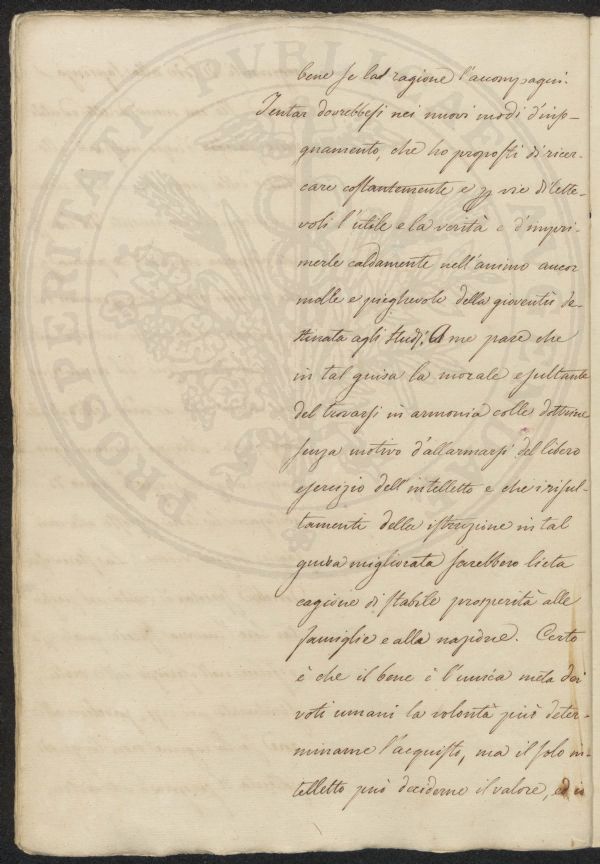 bene se la ragione l'accompagni.
Tentar dovrebbesi nei nuovi modi d'inse-
gnamento, che ho proposti di ricer-
care costantemente e per vie dilette-
voli l'utile e la verità e d'impri-
merle caldamente nell'animo ancor
molle e pieghevole della gioventù de-
stinata agli studj. A me pare che
in tal guisa la morale esultante
del trovarsi in armonia colle dottrine
senza motivo d'allarmarsi del libero
esercizio dell'intelletto e che i risul-
tamenti della istruzione in tal
guisa migliorata sarebbero lieta
cagione di stabile prosperità alle
famiglie e alla nazione. Certo
è che il bene è l'unica meta dei
voti umani la volontà può deter-
minarne l'acquisto, ma il solo in-
telletto può deciderne il valore, ed io
PROSPERITATI PVBLICAE